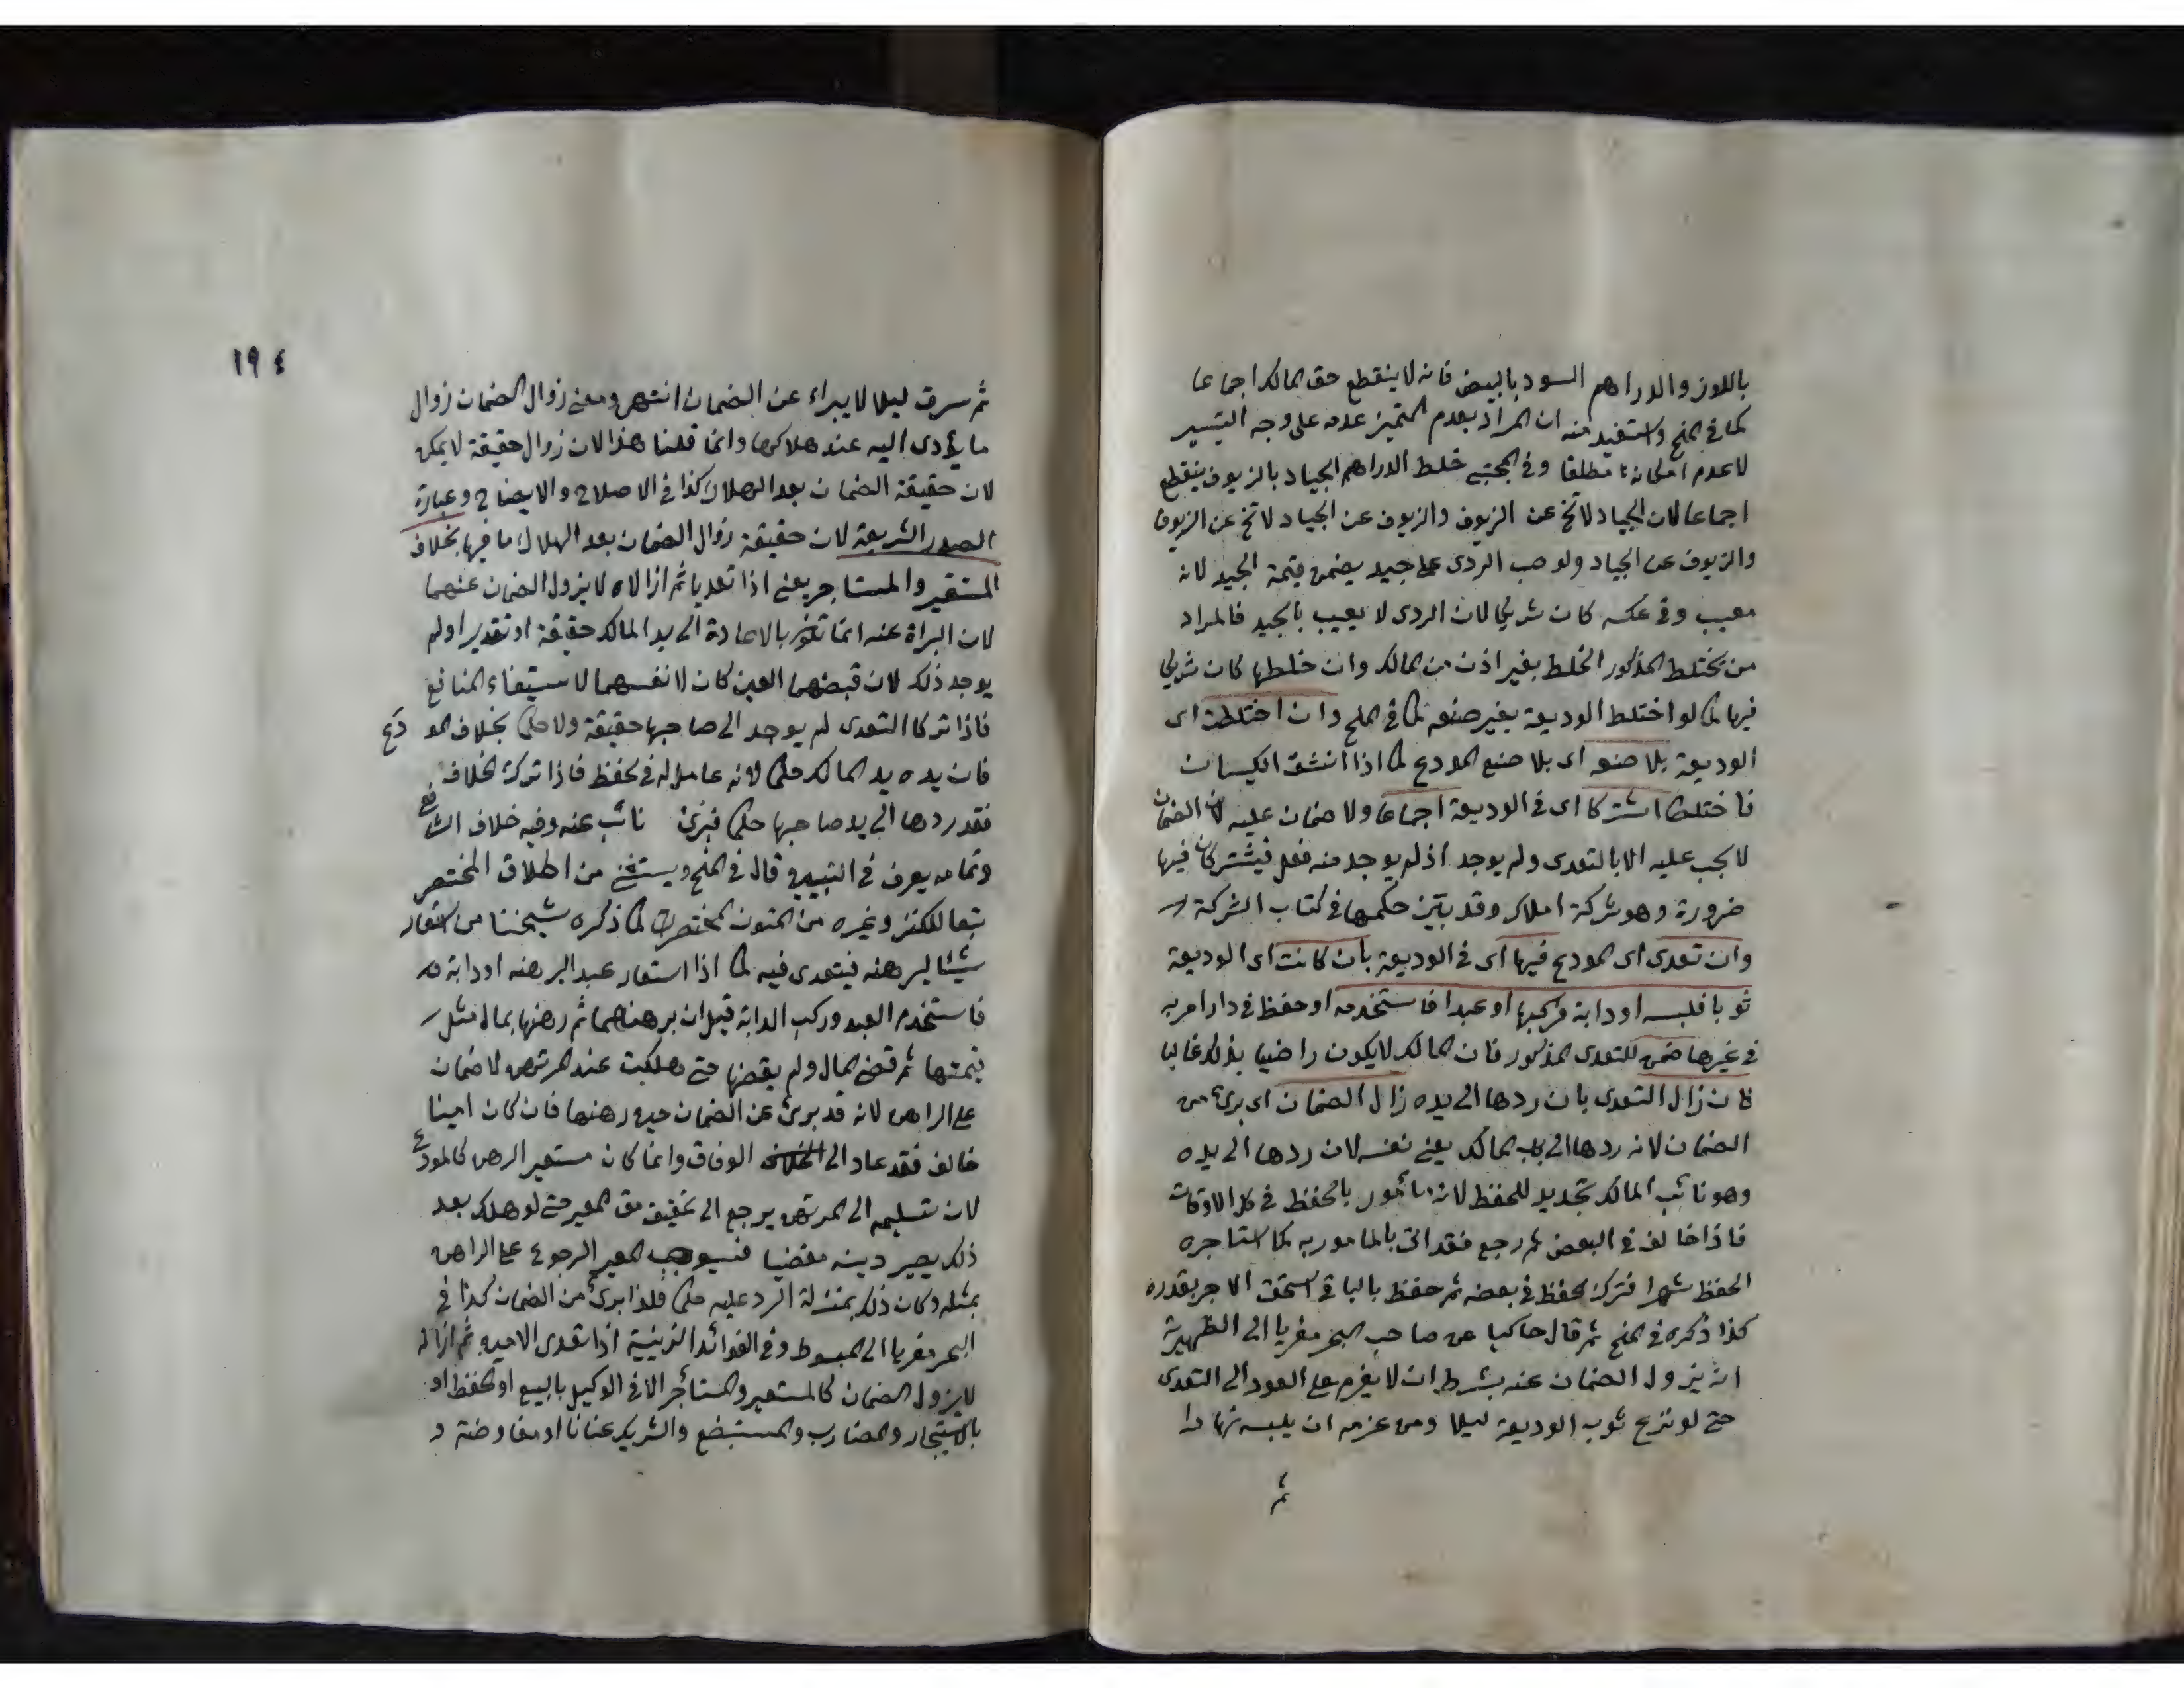 باللوز والدراهم السود بالبيض فانه لا ينقطع حق المالك اجماعا
كما في المنح واستفيد منه ان المراد بعدم التميز عدمه على وجه التيسير
لا عدم امكانه مطلقا وفي المجتبى خلط الدراهم الجياد بالزيوف ينقطع
اجماعا لان الجياد لا تخ عن الزيوف والزيوف عن الجياد لا تخ عن الزيوف
والزيوف عن الجياد ولو صب الردى على جيد يضمن قيمة الجيد لانه
معيب وفي عكسه كان شريكا لان الردى لا يعيب بالجيد فالمراد
من يختلط المذكور الخلط بغير اذن من المالك وان خلطها كان شريكا
فيها كما لو اختلط الوديعة بغير صنعه كما في المنح وان اختلطت اى
الوديعة بلا صنعه اى بلا صنع المودع كما اذا انشق الكيسان
فاختلطا اشتركا اى في الوديعة اجماعا ولا ضمان عليه لان الضمان
لا يجب عليه الا بالتعدى ولم يوجد اذ لم يوجد منه فعل فيشتركان فيها
ضرورة وهو شركة املاك وقد بين حكمها في كتاب الشركة
وان تعدى اى المودع فيها اى في الوديعة بان كانت اى الوديعة
ثوبا فلبسه او دابة فركبها او عبدا فاستخدمه او حفظ في دار امر به
في غيرها ضمن للتعدى المذكور فان المالك لا يكون راضيا بذلك غالبا
فان زال التعدى بان ردها الى يده زال الضمان اى برئ من
الضمان لانه ردها الى يد المالك يعنى نفسه لان ردها الى يده
وهو نائب المالك تجديد للحفظ لانه مأمور بالحفظ في كل الاوقات
فاذا خالف في البعض ثم رجع فقد اتى بالمامور به كما استاجره
للحفظ شهرا فترك الحفظ في بعضه ثم حفظ بالباقى استحق الاجر بقدره
كذا ذكره في المنح ثم قال حاكيا عن صاحب البحر معزيا الى الظهيرية
انه يزول الضمان عنه بشرط ان لا يعزم على العود الى التعدى
حتى لو نزع ثوب الوديعة ليلا ومن عزمه ان يلبسه نهارا
ثم
١٩٤
ثم سرق ليلا لا يبراء عن الضمان انتهى ومعنى زوال الضمان زوال
ما يؤدى اليه عند هلاكها وانما قلنا هذا لان زوال حقيقة لا يمكن
لان حقيقة الضمان بعد الهلاك كذا في الاصلاح والايضاح وعبارة
الصدر الشريعة لان حقيقة زوال الضمان بعد الهلاك ما فيها بخلاف
المستعير والمستاجر يعنى اذا تعديا ثم ازالاه لا يزول الضمان عنهما
لان البراة عنه انما تكون بالاعادة الى يد المالك حقيقة او تقديرا ولم
يوجد ذلك لان قبضهما العين كان لانفسهما لاستيفاء المنافع
فاذا تركا التعدى لم يوجد الى صاحبها حقيقة ولا حكما بخلاف المودع
فان يده يد المالك حكما لانه عامل له في الحفظ فاذا ترك الخلاف
فقد ردها الى يد صاحبها حكما فبرئ نائب عنه وفيه خلاف الشافعى
وتمامه يعرف في التبيين قال في المنح ويستثنى من اطلاق المختصر
تبعا للكنز وغيره من المتون المختصرات كما ذكره شيخنا من استعار
شيئا ليرهنه فيتعدى فيه كما اذا استعار عبدا ليرهنه او دابة
فاستخدم العبد وركب الدابة قبل ان يرهنهما ثم رهنها بمال مثل
قيمتها ثم قضى المال ولم يقبضها حتى هلكت عند المرتهن لا ضمان
على الراهن لانه قد برئ عن الضمان حين رهنها فان كان امينا
خالف فقد عاد الى الوفاق وانما كان مستعير الرهن كالمودع
لان تسليمه الى المرتهن يرجع الى تحقيق حق المعير حتى لو هلك بعد
ذلك يصير دينه مقضيا فيستوجب المعير الرجوع على الراهن
بمثله وكان ذلك بمنزلة الرد عليه حكما فلذا برئ من الضمان كذا في
البحر معزيا الى المبسوط وفي الفوائد الزينية اذا تعدى الامين ثم ازاله
لا يزول الضمان كالمستعير والمستأجر الا في الوكيل بالبيع او الحفظ او
بالاستيجار والمضارب والمستبضع والشريك عنانا او مفاوضة و